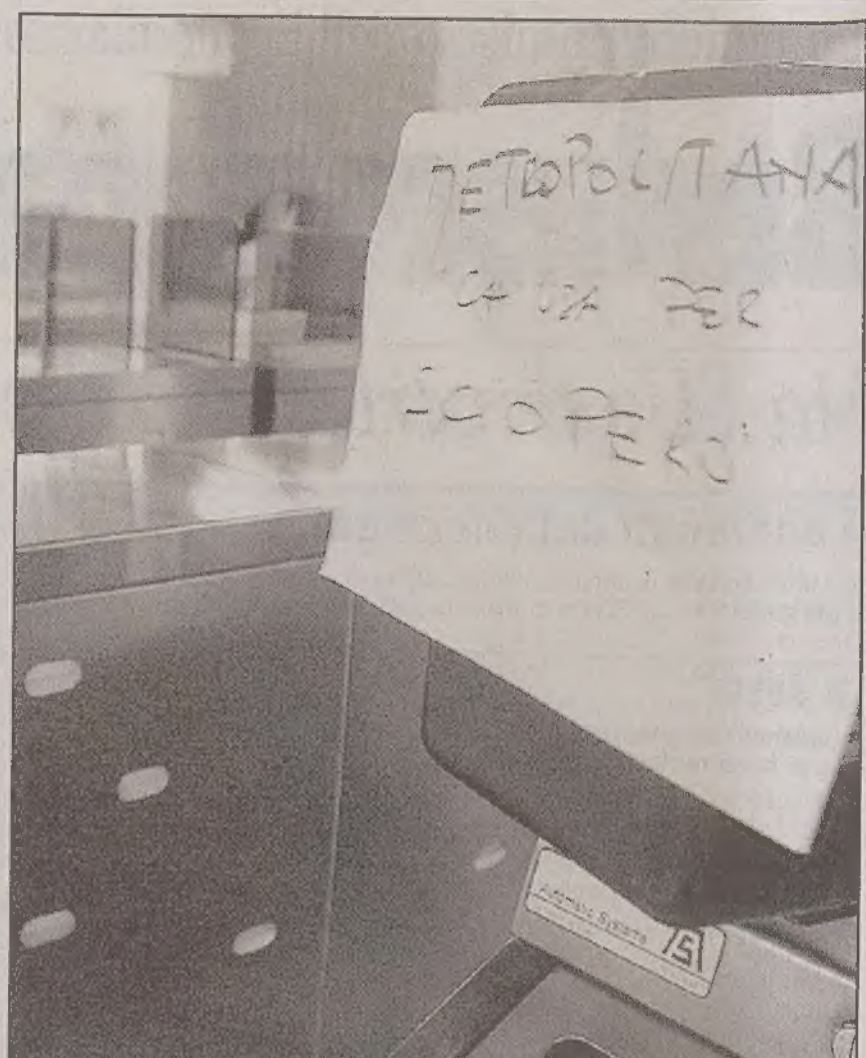 METROPOLITANA
PER
SCIOPERO
Automatic Systems